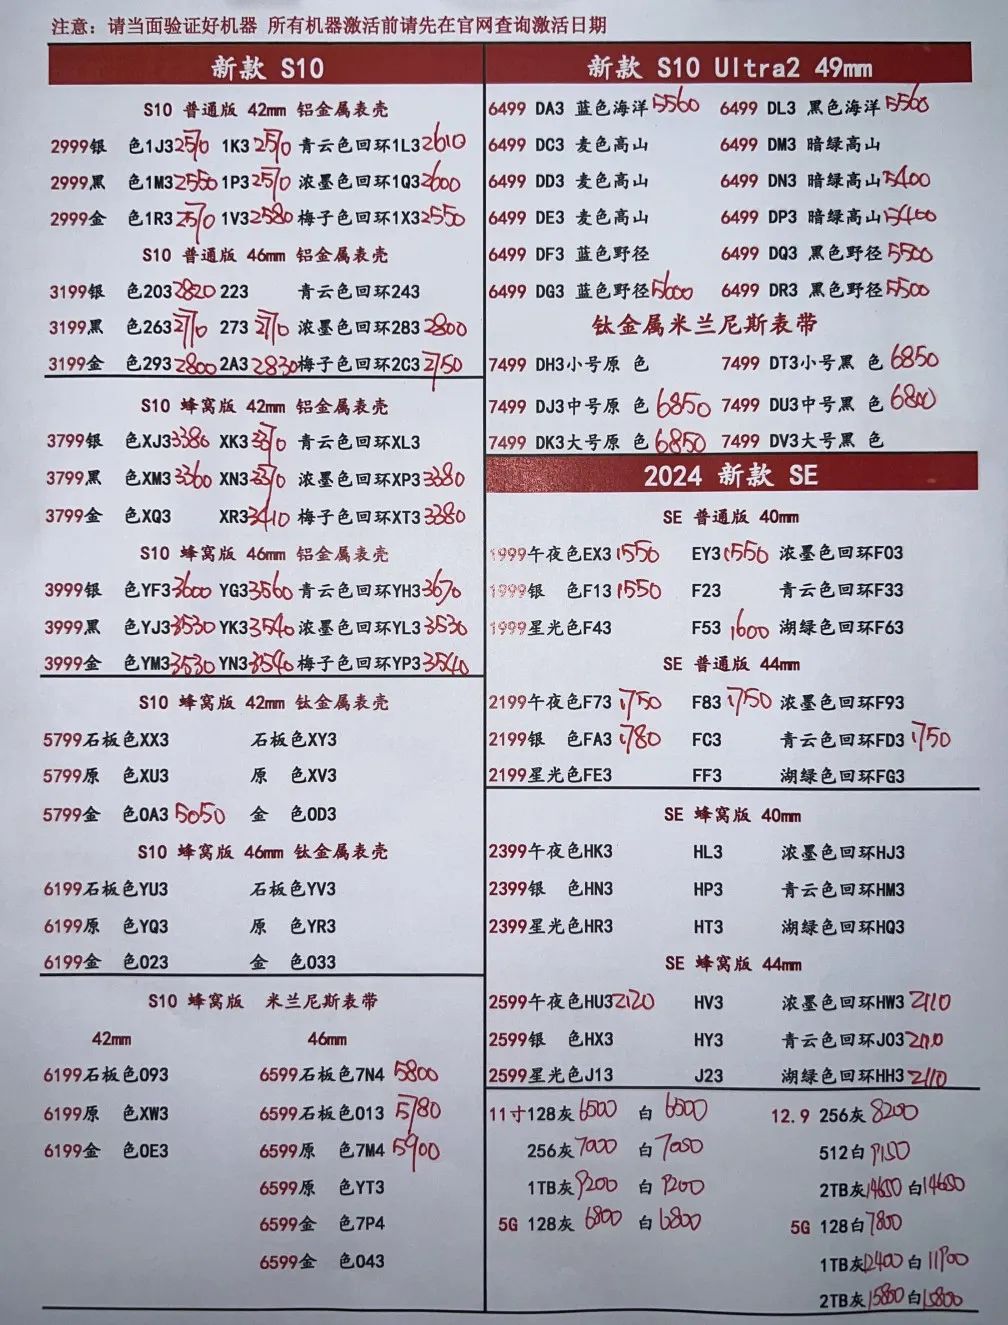 注意：请当面验证好机器 所有机器激活前请先在官网查询激活日期
新款 S10
S10 普通版 42mm 铝金属表壳
2999银 色1J3 2570 1K3 2570 青云色回环1L3 2610
2999黑 色1M3 2550 1P3 2570 浓墨色回环1Q3 2600
2999金 色1R3 2570 1V3 2580 梅子色回环1X3 2550
S10 普通版 46mm 铝金属表壳
3199银 色203 2820 223 青云色回环243
3199黑 色263 2710 273 2710 浓墨色回环283 2800
3199金 色293 2800 2A3 2830 梅子色回环2C3 2750
S10 蜂窝版 42mm 铝金属表壳
3799银 色XJ3 3380 XK3 3370 青云色回环XL3
3799黑 色XM3 3360 XN3 3370 浓墨色回环XP3 3380
3799金 色XQ3 XR3 3410 梅子色回环XT3 3380
S10 蜂窝版 46mm 铝金属表壳
3999银 色YF3 3600 YG3 3560 青云色回环YH3 3670
3999黑 色YJ3 3530 YK3 3540 浓墨色回环YL3 3530
3999金 色YM3 3530 YN3 3540 梅子色回环YP3 3540
S10 蜂窝版 42mm 钛金属表壳
5799石板色XX3 石板色XY3
5799原 色XU3 原 色XV3
5799金 色0A3 5050 金 色0D3
S10 蜂窝版 46mm 钛金属表壳
6199石板色YU3 石板色YV3
6199原 色YQ3 原 色YR3
6199金 色023 金 色033
S10 蜂窝版 米兰尼斯表带
42mm 46mm
6199石板色093 6599石板色7N4 5800
6199原 色XW3 6599石板色013 5780
6199金 色0E3 6599原 色7M4 5900
6599原 色YT3
6599金 色7P4
6599金 色043
新款 S10 Ultra2 49mm
6499 DA3 蓝色海洋 5560 6499 DL3 黑色海洋 5560
6499 DC3 麦色高山 6499 DM3 暗绿高山
6499 DD3 麦色高山 6499 DN3 暗绿高山 5400
6499 DE3 麦色高山 6499 DP3 暗绿高山 5400
6499 DF3 蓝色野径 6499 DQ3 黑色野径 5500
6499 DG3 蓝色野径 5600 6499 DR3 黑色野径 5500
钛金属米兰尼斯表带
7499 DH3小号原 色 7499 DT3小号黑 色 6850
7499 DJ3中号原 色 6850 7499 DU3中号黑 色 6800
7499 DK3大号原 色 6850 7499 DV3大号黑 色
2024 新款 SE
SE 普通版 40mm
1999午夜色EX3 1550 EY3 1550 浓墨色回环F03
1999银 色F13 1550 F23 青云色回环F33
1999星光色F43 F53 1600 湖绿色回环F63
SE 普通版 44mm
2199午夜色F73 1750 F83 1750 浓墨色回环F93
2199银 色FA3 1780 FC3 青云色回环FD3 1750
2199星光色FE3 FF3 湖绿色回环FG3
SE 蜂窝版 40mm
2399午夜色HK3 HL3 浓墨色回环HJ3
2399银 色HN3 HP3 青云色回环HM3
2399星光色HR3 HT3 湖绿色回环HQ3
SE 蜂窝版 44mm
2599午夜色HU3 2120 HV3 浓墨色回环HW3 2110
2599银 色HX3 HY3 青云色回环J03 2110
2599星光色J13 J23 湖绿色回环HH3 2110
11寸128灰 6500 白 6500 12.9 256灰 8200
256灰 7000 白 7000 512白 9150
1TB灰 9200 白 9200 2TB灰 14650 白 14650
5G 128灰 6800 白 6800 5G 128白 7800
1TB灰 12400 白 11900
2TB灰 15800 白 15800